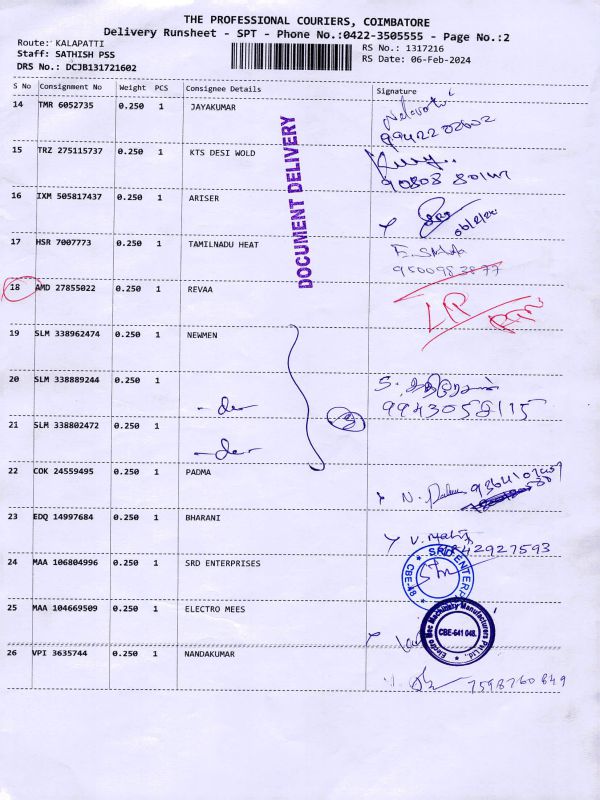 THE PROFESSIONAL COURIERS, COIMBATORE
Delivery Runsheet - SPT - Phone No.:0422-3505555 - Page No.:2
Route: KALAPATTI
Staff: SATHISH PSS
DRS No.: DCJB131721602
RS No.: 1317216
RS Date: 06-Feb-2024
S No Consignment No Weight PCS Consignee Details Signature
14 TMR 6052735 0.250 1 JAYAKUMAR
15 TRZ 275115737 0.250 1 KTS DESI WOLD
16 IXM 505817437 0.250 1 ARISER
17 HSR 7007773 0.250 1 TAMILNADU HEAT
DOCUMENT DELIVERY
18 AMD 27855022 0.250 1 REVAA
19 SLM 338962474 0.250 1 NEWMEN
20 SLM 338889244 0.250 1
21 SLM 338802472 0.250 1
22 COK 24559495 0.250 1 PADMA
23 EDQ 14997684 0.250 1 BHARANI
24 MAA 106804996 0.250 1 SRD ENTERPRISES
25 MAA 104669509 0.250 1 ELECTRO MEES
CBE-641 048.
26 VPI 3635744 0.250 1 NANDAKUMAR
7598760849